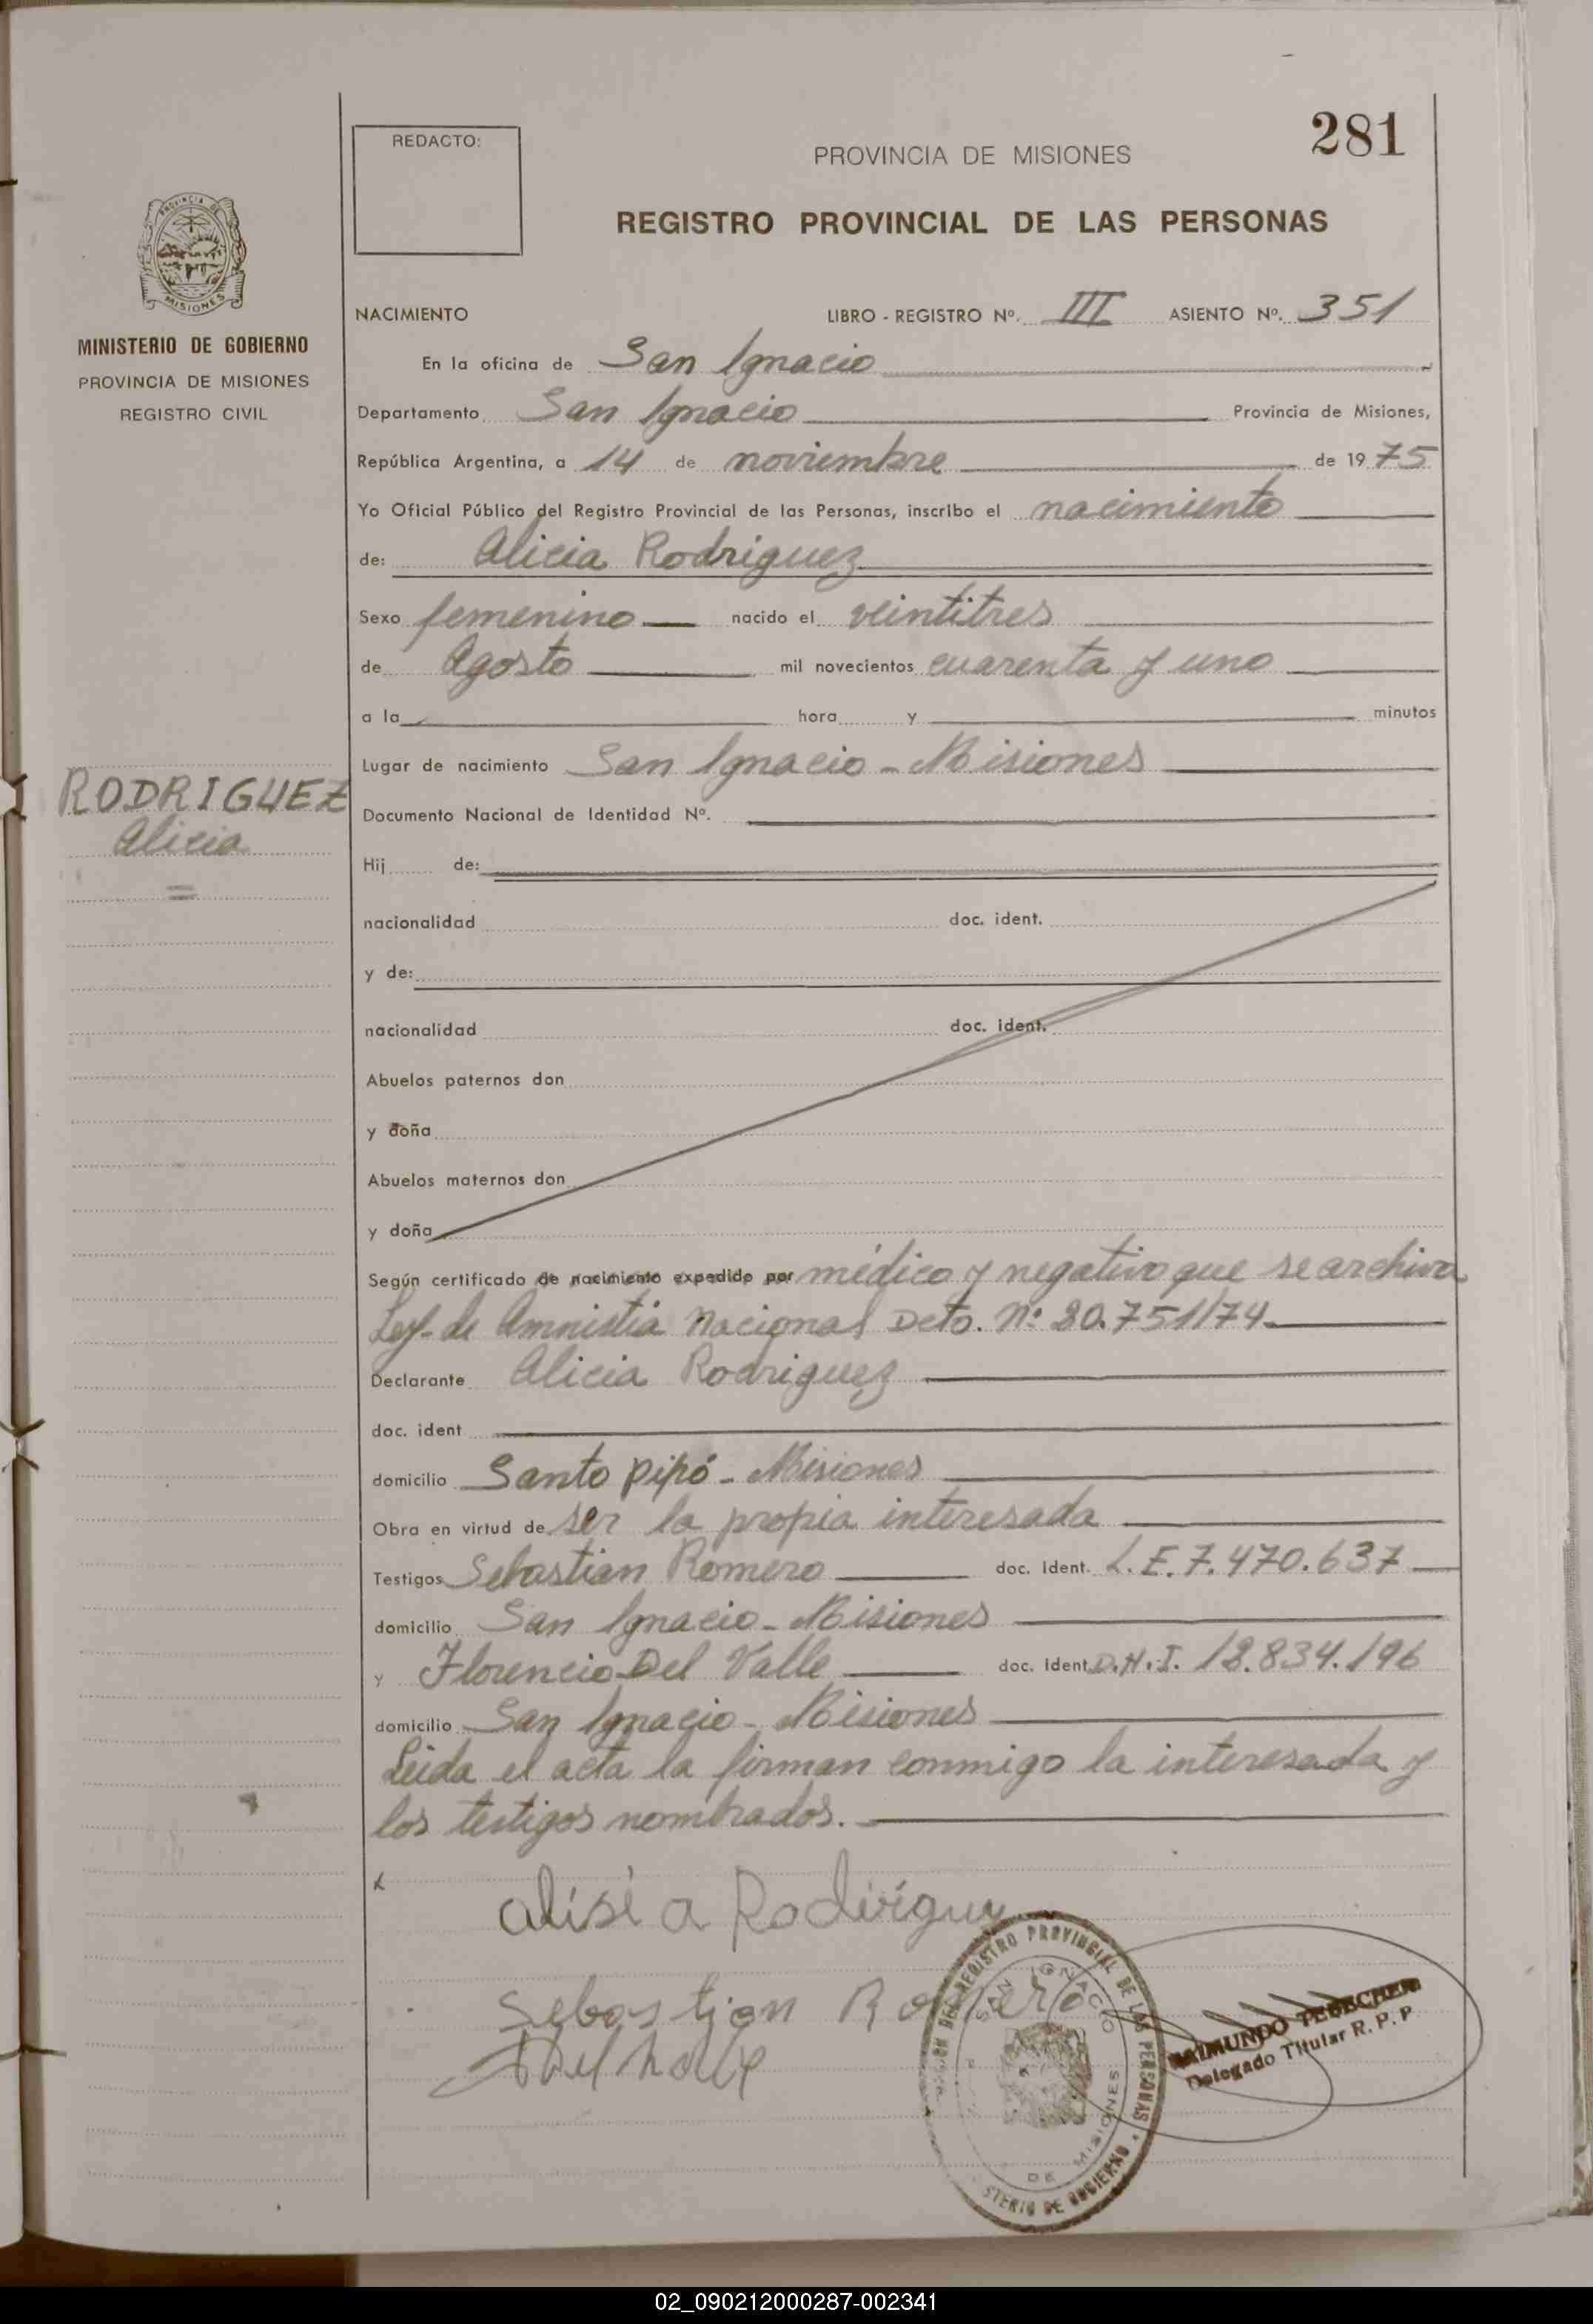 281
REDACTO:
PROVINCIA DE MISIONES
REGISTRO PROVINCIAL DE LAS PERSONAS
PROVINCIA DE
MISIONES
MINISTERIO DE GOBIERNO
PROVINCIA DE MISIONES
REGISTRO CIVIL
NACIMIENTO LIBRO - REGISTRO Nº. III ASIENTO Nº. 351
En la oficina de San Ignacio
Departamento San Ignacio Provincia de Misiones,
República Argentina, a 14 de noviembre de 19 75
Yo Oficial Público del Registro Provincial de las Personas, inscribo el nacimiento
de: Alicia Rodriguez
Sexo femenino nacido el veintitres
de Agosto mil novecientos cuarenta y uno
a la hora y minutos
Lugar de nacimiento San Ignacio - Misiones
RODRIGUEZ
Alicia
Documento Nacional de Identidad Nº.
Hij de:
nacionalidad doc. ident.
y de:
nacionalidad doc. ident.
Abuelos paternos don
y doña
Abuelos maternos don
y doña
Según certificado de nacimiento expedido por médico y negativo que se archiva
Ley de Amnistia Nacional Deto. Nº 20.751/74.
Declarante Alicia Rodriguez
doc. ident
domicilio Santo Pipó - Misiones
Obra en virtud de ser la propia interesada
Testigos Sebastian Romero doc. ident. L.E. 7.470.637
domicilio San Ignacio - Misiones
y Florencio Del Valle doc. ident D.N.I. 12.834.196
domicilio San Ignacio - Misiones
Leida el acta la firman conmigo la interesada y
los testigos nombrados.
alisia Rodirigue
Sebastian Romero
REGISTRO PROVINCIAL DE LAS PERSONAS
SAN IGNACIO
DE MISIONES
DE GOBIERNO
RAIMUNDO
Delegado Titular R. P. P.
02_090212000287-002341